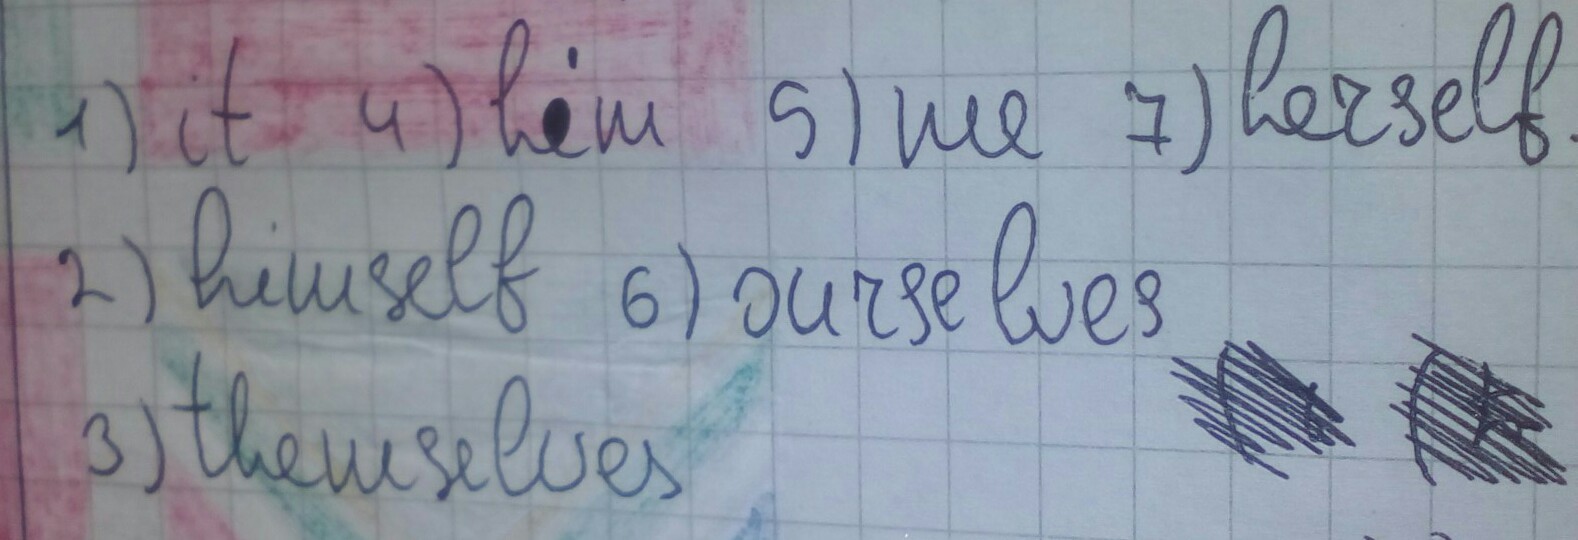 1) it 4) him 5) me 7) herself.
2) himself 6) ourselves
3) themselves